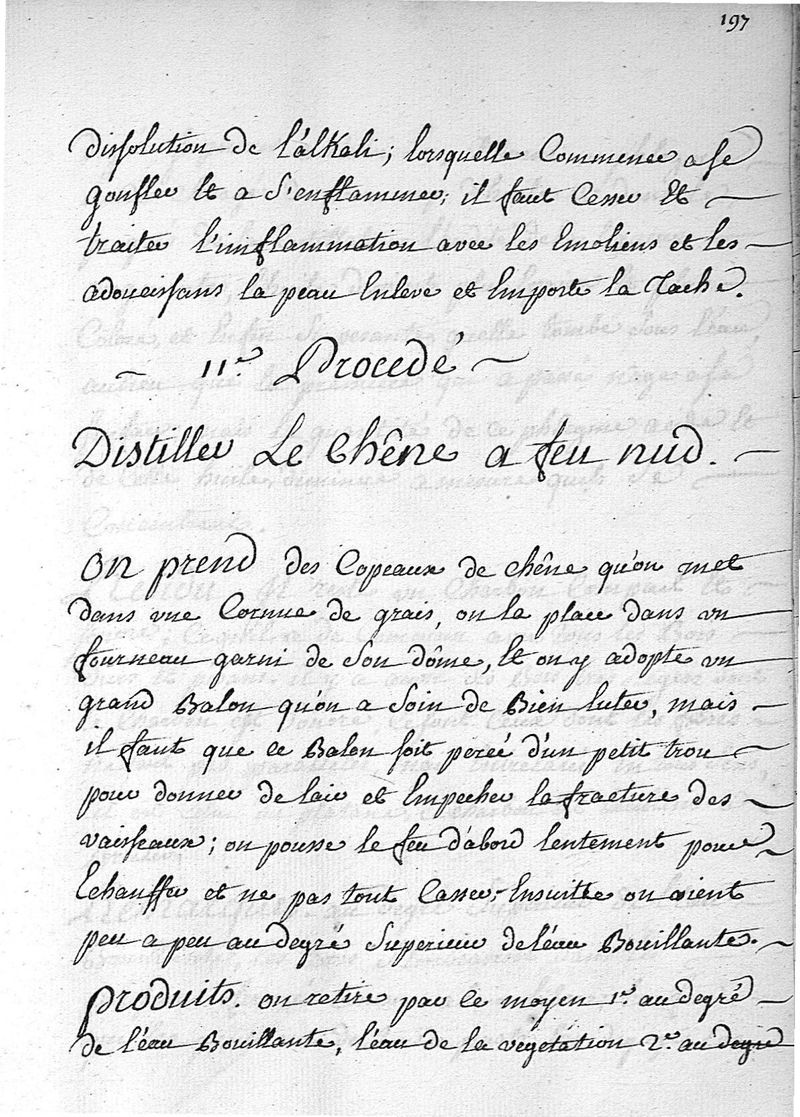 197
dissolution de l'álkali; lorsquelle Commence a se
gonfler et a S'enflammer; il faut Cesser Et —
traiter l'imflammation avec les Emoliens et les —
adoucissans la peau Enleve et Emporte la Tache.
— 11.e Procedé —
Distiller Le Chêne a feu nud. —
on prend des Copeaux de chêne qu'on met
dans vne Cornue de grais, on la place dans vn
fourneau garni de Son dôme, Et on y adopte vn
grand Balon qu'on a Soin de Bien luter, mais —
il faut que ce Balon soit percé d'un petit trou —
pour donner de l'air et Empecher la fracture des —
vaisseaux; on pousse le feu d'abord lentement pour —
Echauffer et ne pas tout Casser, Ensuitte on vient
peu a peu au degré Superieur de l'éau Bouillante. —
produits. on retire par ce moyen 1.o au degré —
de l'éau Bouillante, l'éau de la végétation 2.o au degré